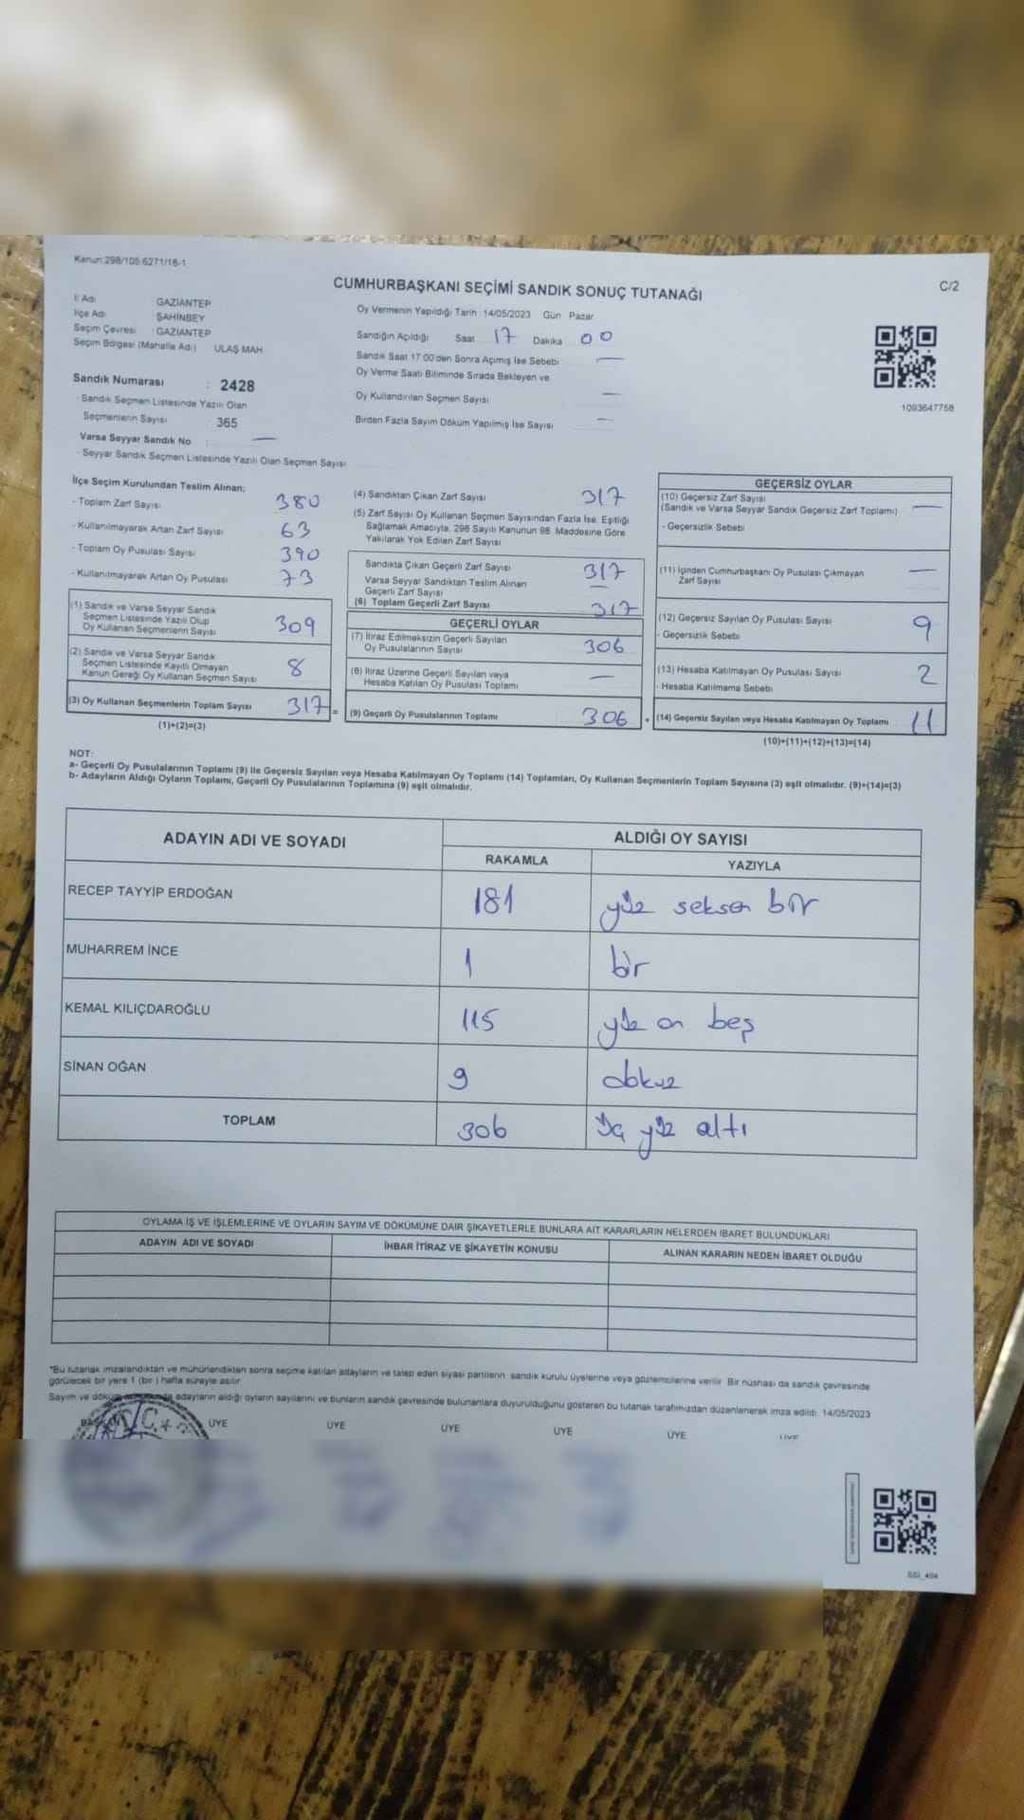 Kanun:298/105 6271/16-1
CUMHURBAŞKANI SEÇİMİ SANDIK SONUÇ TUTANAĞI
C/2
İl Adı GAZİANTEP
İlçe Adı ŞAHİNBEY
Seçim Çevresi : GAZİANTEP
Seçim Bölgesi (Mahalle Adı) ULAŞ MAH.
Sandık Numarası : 2428
- Sandık Seçmen Listesinde Yazılı Olan
Seçmenlerin Sayısı 365
Varsa Seyyar Sandık No : —
- Seyyar Sandık Seçmen Listesinde Yazılı Olan Seçmen Sayısı
Oy Vermenin Yapıldığı Tarih : 14/05/2023 Gün Pazar
Sandığın Açıldığı Saat 17 Dakika 00
Sandık Saat 17:00'den Sonra Açılmış İse Sebebi —
Oy Verme Saati Bitiminde Sırada Bekleyen ve
Oy Kullandırılan Seçmen Sayısı —
Birden Fazla Sayım Döküm Yapılmış İse Sayısı —
1093647758
İlçe Seçim Kurulundan Teslim Alınan;
- Toplam Zarf Sayısı 380
- Kullanılmayarak Artan Zarf Sayısı 63
- Toplam Oy Pusulası Sayısı 390
- Kullanılmayarak Artan Oy Pusulası 73
(1) Sandık ve Varsa Seyyar Sandık
Seçmen Listesinde Yazılı Olup
Oy Kullanan Seçmenlerin Sayısı 309
(2) Sandık ve Varsa Seyyar Sandık
Seçmen Listesinde Kayıtlı Olmayan
Kanun Gereği Oy Kullanan Seçmen Sayısı 8
(3) Oy Kullanan Seçmenlerin Toplam Sayısı 317 =
(1)+(2)=(3)
(4) Sandıktan Çıkan Zarf Sayısı 317
(5) Zarf Sayısı Oy Kullanan Seçmen Sayısından Fazla İse, Eşitliği
Sağlamak Amacıyla, 298 Sayılı Kanunun 98. Maddesine Göre
Yakılarak Yok Edilen Zarf Sayısı
Sandıkta Çıkan Geçerli Zarf Sayısı 317
Varsa Seyyar Sandıktan Teslim Alınan
Geçerli Zarf Sayısı —
(6) Toplam Geçerli Zarf Sayısı 317
GEÇERLİ OYLAR
(7) İtiraz Edilmeksizin Geçerli Sayılan
Oy Pusulalarının Sayısı 306
(8) İtiraz Üzerine Geçerli Sayılan veya
Hesaba Katılan Oy Pusulası Toplamı —
(9) Geçerli Oy Pusulalarının Toplamı 306 +
GEÇERSİZ OYLAR
(10) Geçersiz Zarf Sayısı
(Sandık ve Varsa Seyyar Sandık Geçersiz Zarf Toplamı) —
- Geçersizlik Sebebi
(11) İçinden Cumhurbaşkanı Oy Pusulası Çıkmayan
Zarf Sayısı —
(12) Geçersiz Sayılan Oy Pusulası Sayısı 9
- Geçersizlik Sebebi
(13) Hesaba Katılmayan Oy Pusulası Sayısı 2
- Hesaba Katılmama Sebebi
(14) Geçersiz Sayılan veya Hesaba Katılmayan Oy Toplamı 11
(10)+(11)+(12)+(13)=(14)
NOT:
a- Geçerli Oy Pusulalarının Toplamı (9) ile Geçersiz Sayılan veya Hesaba Katılmayan Oy Toplamı (14) Toplamları, Oy Kullanan Seçmenlerin Toplam Sayısına (3) eşit olmalıdır. (9)+(14)=(3)
b- Adayların Aldığı Oyların Toplamı, Geçerli Oy Pusulalarının Toplamına (9) eşit olmalıdır.
ADAYIN ADI VE SOYADI ALDIĞI OY SAYISI
RAKAMLA YAZIYLA
RECEP TAYYİP ERDOĞAN 181 yüz seksen bir
MUHARREM İNCE 1 bir
KEMAL KILIÇDAROĞLU 115 yüz on beş
SİNAN OĞAN 9 dokuz
TOPLAM 306 Üç yüz altı
OYLAMA İŞ VE İŞLEMLERİNE VE OYLARIN SAYIM VE DÖKÜMÜNE DAİR ŞİKAYETLERLE BUNLARA AİT KARARLARIN NELERDEN İBARET BULUNDUKLARI
ADAYIN ADI VE SOYADI İHBAR İTİRAZ VE ŞİKAYETİN KONUSU ALINAN KARARIN NEDEN İBARET OLDUĞU
*Bu tutanak imzalandıktan ve mühürlendikten sonra seçime katılan adayların ve talep eden siyasi partilerin sandık kurulu üyelerine veya gözlemcilerine verilir. Bir nüshası da sandık çevresinde
görülecek bir yere 1 (bir) hafta süreyle asılır.
Sayım ve döküm adayların aldığı oyların sayılarını ve bunların sandık çevresinde bulunanlara duyurulduğunu gösteren bu tutanak tarafımızdan düzenlenerek imza edildi. 14/05/2023
ÜYE ÜYE ÜYE ÜYE ÜYE ÜYE